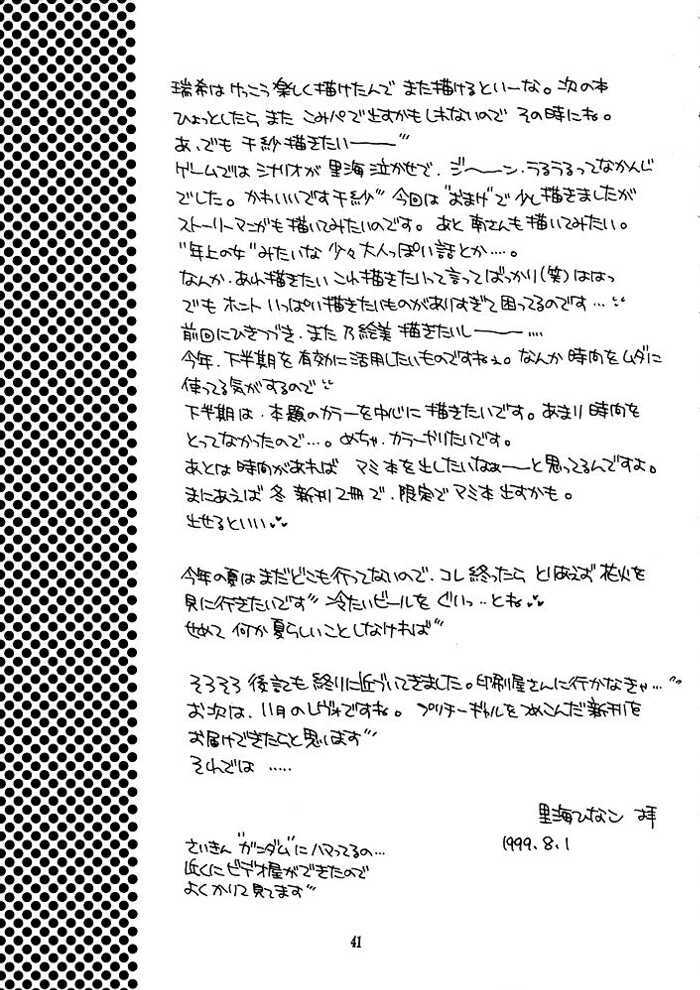 瑞希は けっこう楽しく描けたんで また描けるといーな。次の本
ひょっとしたら また こみパで出すかもしれないので その時にね。
あ、でも 千紗描きたいーー"
ゲームでは シナリオが 里海泣かせで、ジ〜〜ン・うるうるってなかんじ
でした。かわいいです千紗" 今回は"おまけ"で少し描きましたが
ストーリーマンガも描いてみたいのです。あと 南さんも描いてみたい。
"年上の女"みたいな 少々大人っぽい話とか‥‥。
なんか、あれ描きたい これ描きたいって言ってばっかり(笑)ははっ
でも ホント いっぱい描きたいものがありすぎて困ってるのです…
前回にひきつづき、また 乃絵美 描きたいしーー‥‥
今年、下半期を有効に活用したいものですねぇ。なんか 時間をムダに
使ってる気がするので
下半期は、本題のカラーを中心に描きたいです。あまり 時間を
とってなかったので…。めちゃ、カラーやりたいです。
あとは 時間があれば マミ本を出したいなぁーーと思ってるんですよ。
まにあえば 冬 新刊2冊で、限定でマミ本出すかも。
出せるといい♥♥
今年の夏は まだどこも行ってないので、コレ終ったら とりあえず 花火を
見に行きたいです" 冷たいビールを ぐいっ‥とね♥♥
せめて 何か夏らしいことしなければ"
そろそろ 後記も 終りに近づいてきました。印刷屋さんに行かなきゃ…"
お次は、11月のレヴォですね。 プリチーギャルをつめこんだ新刊を
お届けできたらと思います"
それでは ‥‥‥
里海ひなこ 拝
1999.8.1
さいきん"ガンダム"にハマってるの…
近くにビデオ屋ができたので
よくかりて見てます"
41